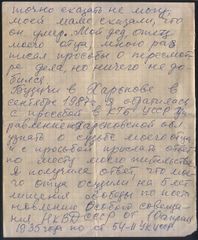 точно сказать не могу,
моей маме сказали, что
он умер. Мой дед отец
моего отца много раз
писал просьбы о пересмот
ре дела, но ничего не до
бился.
Будучи в Харькове в
сентябре 198 г. я обратилась
с просьбой в КГБ УССР Уп
равление Харьковской обл.
узнать о судьбе моего отца
и с просьбой прислать ответ
по месту моего жительства
Я получила ответ, что мо
его отца осудили на 5 лет
лишения свободы по пост
новлению Особого совеща
НКВД СССР от 10 апреля
1935 года по ст 54-11 УК УССР